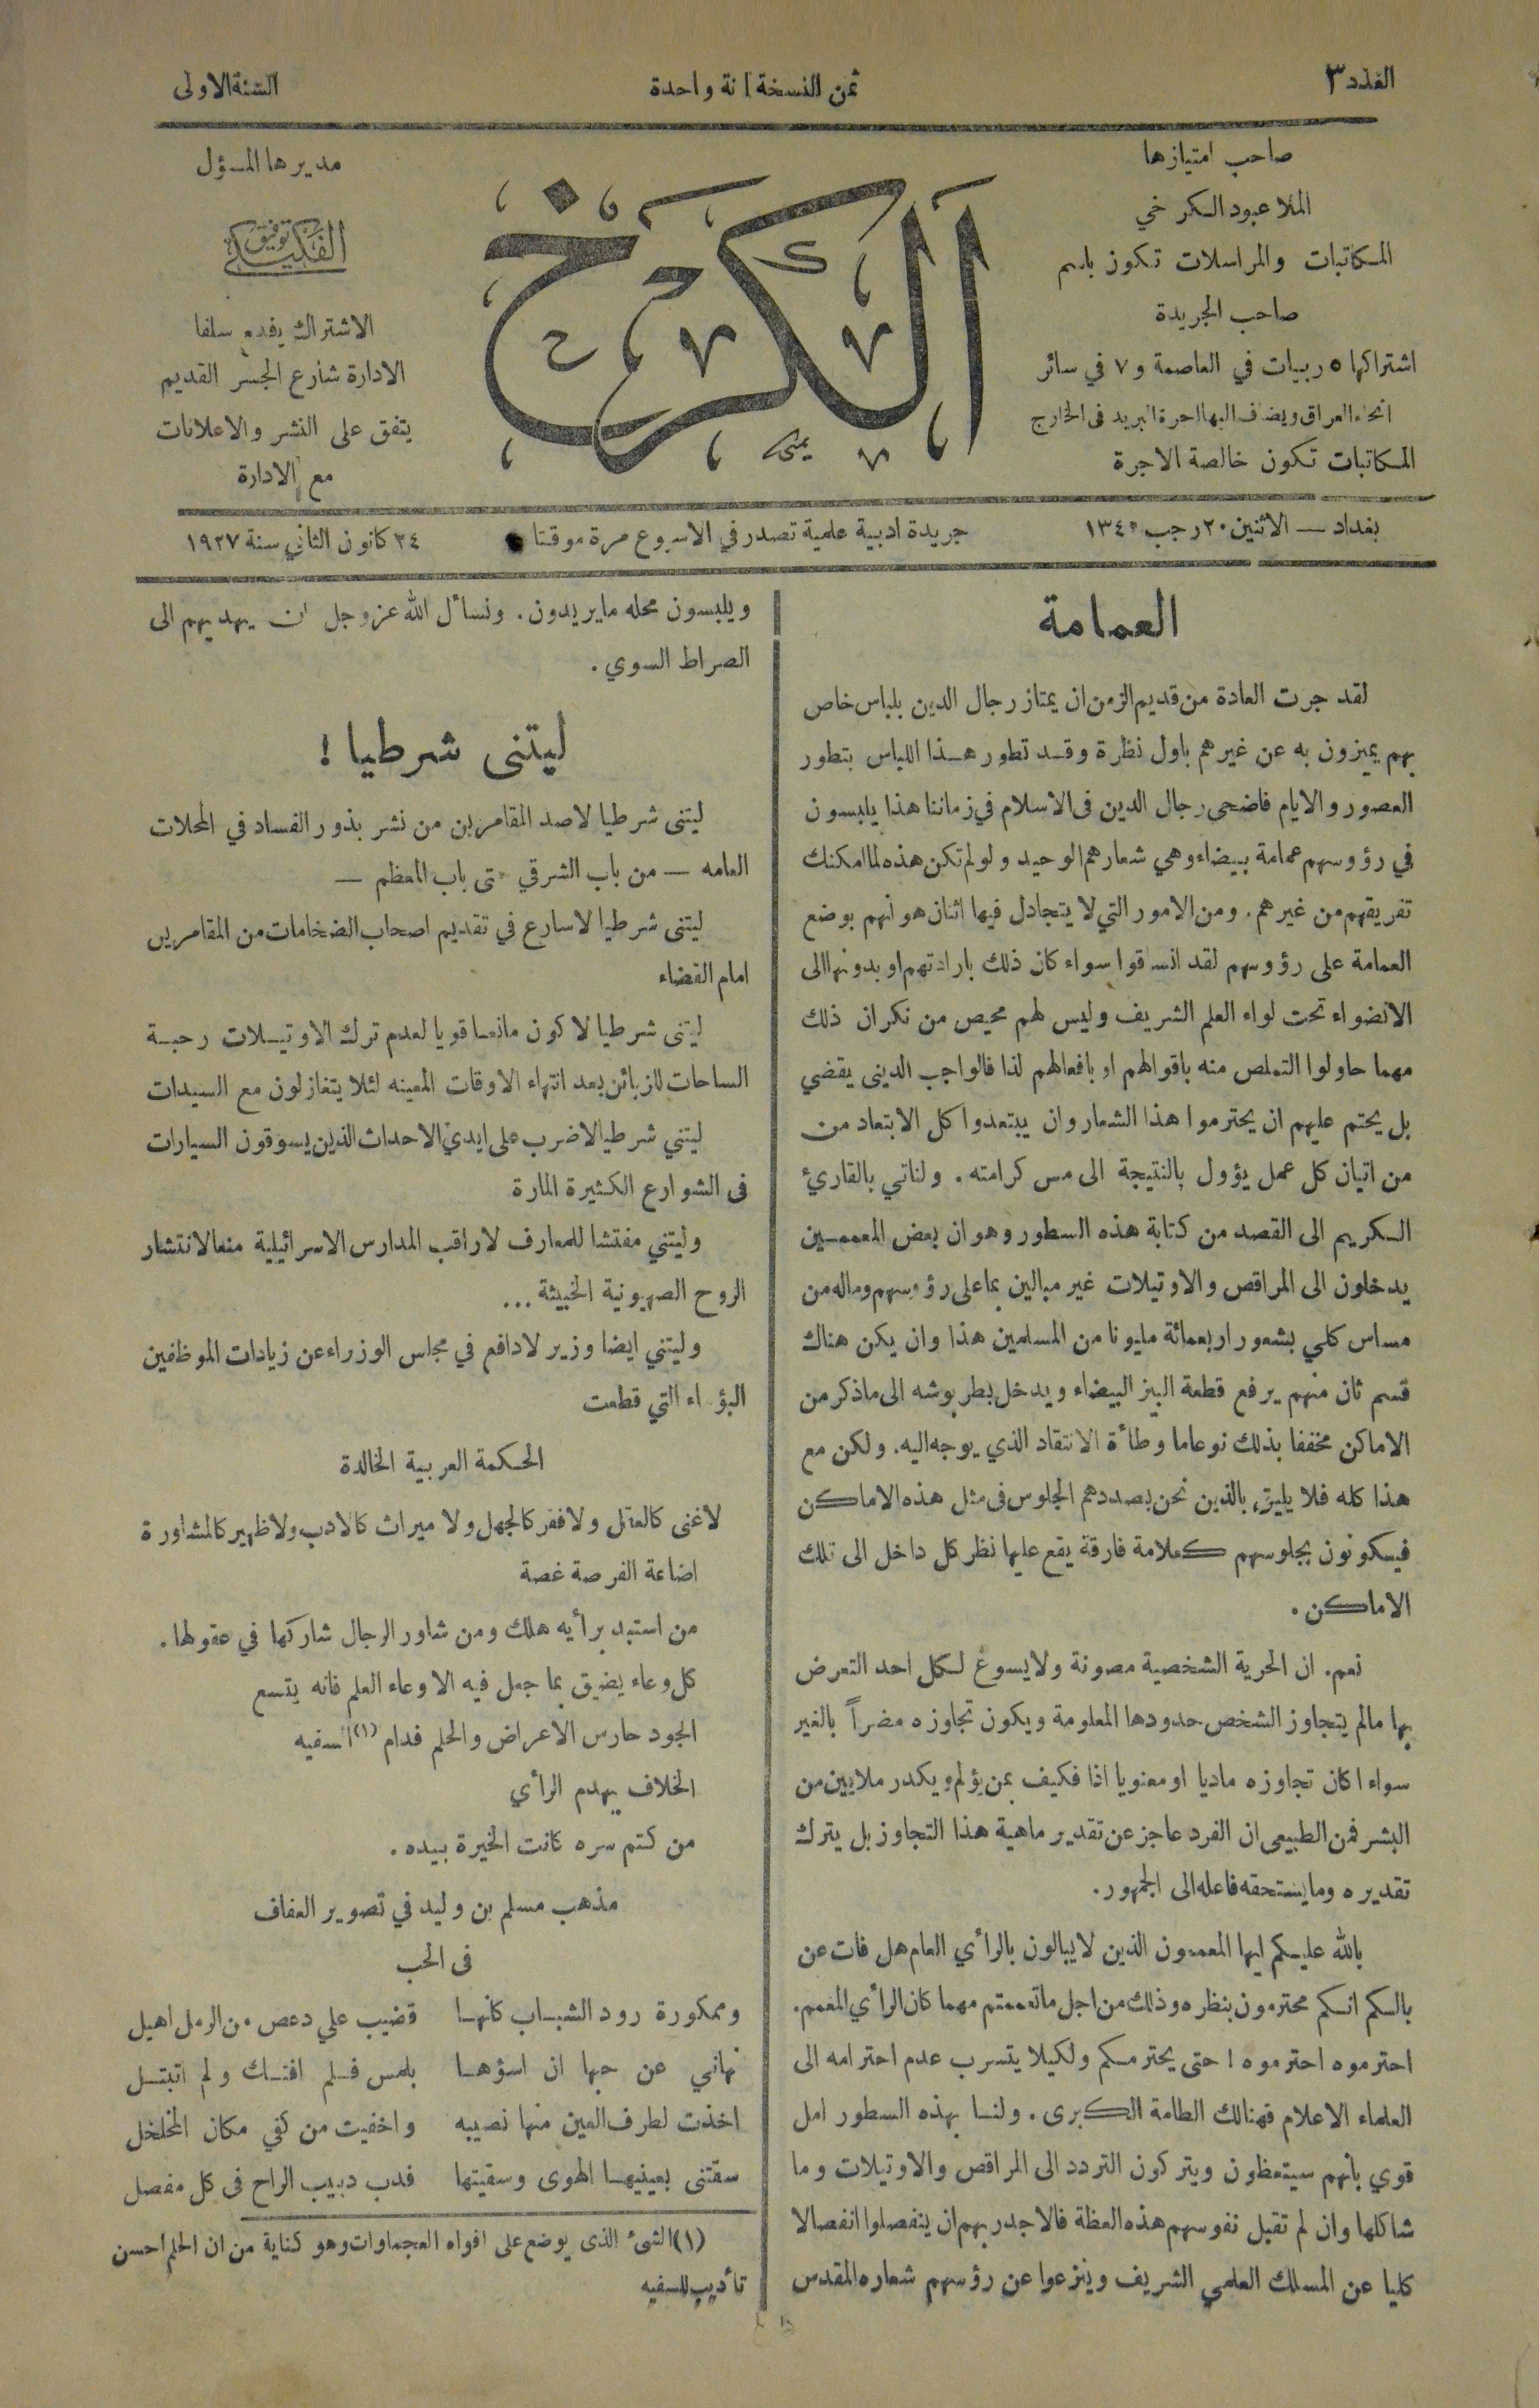 العدد ٣
ثمن النسخة انة واحدة
السنة الاولى
صاحب امتيازها
الملا عبود الكرخي
المكاتبات والمراسلات تكون باسم
صاحب الجريدة
اشتراكها ٥ ربيات في العاصمة و ٧ في سائر
انحاء العراق ويضاف اليها اجرة البريد فى الخارج
المكاتبات تكون خالصة الاجرة
الكرخ
يمنى
مديرها المسؤل
توفيق الفكيكي
الاشتراك يفدم سلفا
الادارة شارع الجسر القديم
يتفق على النشر والاعلانات
مع الادارة
بغداد — الاثنين ٢٠ رجب ١٣٤٥
جريدة ادبية علمية تصدر في الاسبوع مرة موقتا
٢٤ كانون الثاني سنة ١٩٢٧
العمامة
لقد جرت العادة من قديم الزمن ان يمتاز رجال الدين بلباس خاص
بهم يميزون به عن غيرهم باول نظرة وقد تطور هذا اللباس بتطور
العصور والايام فاضحى رجال الدين فى الاسلام في زماننا هذا يلبسون
في رؤوسهم عمامة بيضاء وهي شعارهم الوحيد ولو لم تكن هذه لما امكنك
تفريقهم من غيرهم. ومن الامور التي لا يتجادل فيها اثنان هو انهم بوضع
العمامة على رؤوسهم لقد انساقوا سواء كان ذلك بارادتهم او بدونها الى
الانضواء تحت لواء العلم الشريف وليس لهم محيص من نكران ذلك
مهما حاولوا التملص منه باقوالهم او بافعالهم لذا فالواجب الدينى يقضي
بل يحتم عليهم ان يحترموا هذا الشعار وان يبتعدوا كل الابتعاد من
من اتيان كل عمل يؤول بالنتيجة الى مس كرامته. ولناتي بالقاريء
الكريم الى القصد من كتابة هذه السطور وهو ان بعض المعممين
يدخلون الى المراقص والاوتيلات غير مبالين بما على رؤوسهم وماله من
مساس كلي بشعور اربعمائة مليونا من المسلمين هذا وان يكن هناك
قسم ثان منهم يرفع قطعة البز البيضاء ويدخل بطربوشه الى ماذكر من
الاماكن مخففا بذلك نوعاما وطأة الانتقاد الذي يوجه اليه. ولكن مع
هذا كله فلا يليق بالذين نحن بصددهم الجلوس فى مثل هذه الاماكن
فيكونون بجلوسهم كعلامة فارقة يقع عليها نظر كل داخل الى تلك
الاماكن.
نعم. ان الحرية الشخصية مصونة ولا يسوغ لكل احد التعرض
بها مالم يتجاوز الشخص حدودها المعلومة ويكون تجاوزه مضراً بالغير
سواء اكان تجاوزه ماديا او معنويا اذا فكيف بمن يؤلم ويكدر ملايين من
البشر فمن الطبيعى ان الفرد عاجز عن تقدير ماهية هذا التجاوز بل يترك
تقديره وما يستحقه فاعله الى الجمهور.
بالله عليكم ايها المعممون الذين لا يبالون بالرأي العام هل فات عن
بالكم انكم محترمون بنظره وذلك من اجل ماتعممتم مهما كان الرأي المعمم.
احترموه احترموه ا حتى يحترمكم ولكيلا يتسرب عدم احترامه الى
العلماء الاعلام فهنالك الطامة الكبرى. ولنا بهذه السطور امل
قوي بأنهم سيتعظون ويتركون التردد الى المراقص والاوتيلات وما
شاكلها وان لم تقبل نفوسهم هذه العظة فالاجدر بهم ان ينفصلوا انفصالا
كليا عن المسلك العلمي الشريف وينزعوا عن رؤسهم شعاره المقدس
ويلبسون محله مايريدون. ونسأل الله عز وجل ان يهديهم الى
الصراط السوي.
ليتنى شرطيا !
ليتنى شرطيا لاصد المقامرين من نشر بذور الفساد في المحلات
العامه — من باب الشرقي حتى باب المعظم —
ليتنى شرطيا لاسارع في تقديم اصحاب الضخامات من المقامرين
امام القضاء
ليتنى شرطيا لاكون مانعا قويا لعدم ترك الاوتيلات رحبة
الساحات للزبائن بعد انتهاء الاوقات المعينه لئلا يتغازلون مع السيدات
ليتني شرطيا لاضرب على ايدي الاحداث الذين يسوقون السيارات
فى الشوارع الكثيرة المارة
وليتني مفتشا للمعارف لاراقب المدارس الاسرائيلية منعا لانتشار
الروح الصهيونية الخبيثة ...
وليتني ايضا وزير لادافع في مجلس الوزراء عن زيادات الموظفين
البؤساء التي قطعت
الحكمة العربية الخالدة
لاغنى كالعقل ولا فقر كالجهل ولا ميراث كالادب ولا ظهير كالمشاورة
اضاعة الفرصة غصة
من استبد برأيه هلك ومن شاور الرجال شاركها في عقولها.
كل وعاء يضيق بما جعل فيه الا وعاء العلم فانه يتسع
الجود حارس الاعراض والحلم فدام (١) السفيه
الخلاف يهدم الرأي
من كتم سره كانت الخيرة بيده.
مذهب مسلم بن وليد في تصوير العفاف
فى الحب
وممكورة رود الشباب كانها قضيب علي دعص من الرمل اهيل
نهاني عن حبها ان اسؤها بلمس فلم افتك ولم اتبتل
اخذت لطرف العين منها نصيبه واخفيت من كفي مكان المخلخل
سقتنى بعينيها الهوى وسقيتها فدب دبيب الراح فى كل مفصل
(١) الشىء الذى يوضع على افواه العجماوات وهو كناية من ان الحلم احسن
تأديب للسفيه